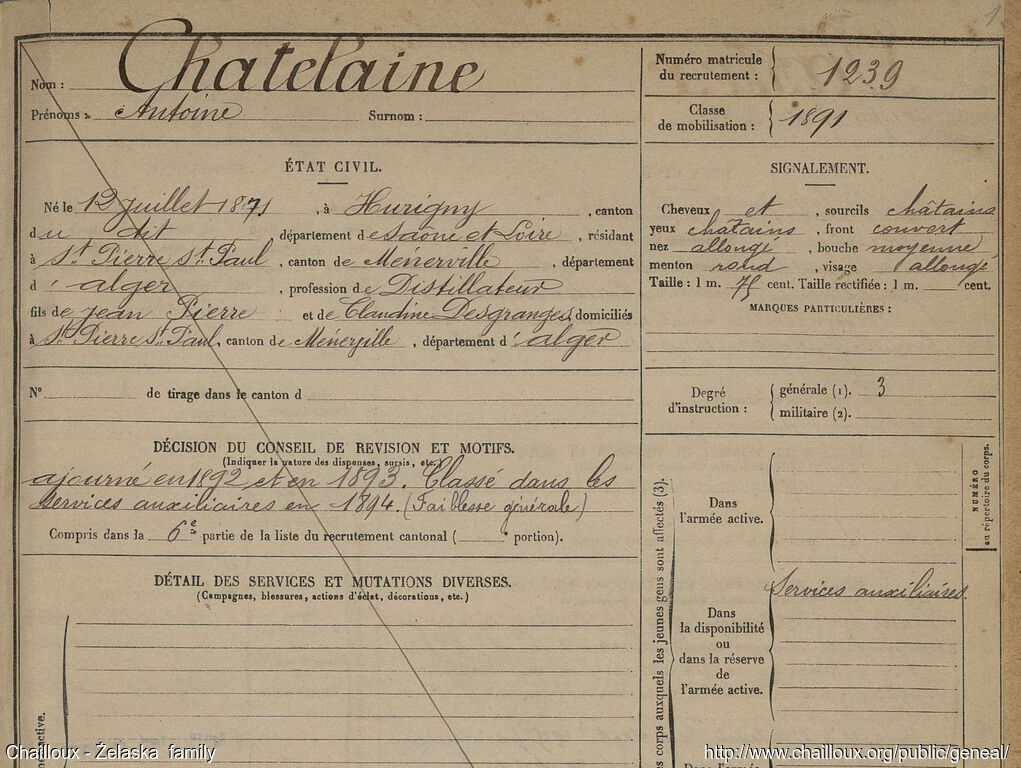 1
Nom : Chatelaine
Prénoms : Antoine Surnom :
Numéro matricule
du recrutement : 1239
Classe
de mobilisation : 1891
ÉTAT CIVIL.
Né le 12 juillet 1871, à Hurigny, canton
du dit département de Saône et Loire, résidant
à St Pierre St Paul, canton de Menerville, département
d'alger, profession de Distillateur
fils de jean Pierre et de Claudine Desgranges, domiciliés
à St Pierre St Paul, canton de Ménerville, département d'alger
SIGNALEMENT.
Cheveux et, sourcils châtains
yeux châtains, front couvert
nez allongé, bouche moyenne
menton rond, visage allongé
Taille : 1 m. 75 cent. Taille rectifiée : 1 m. cent.
MARQUES PARTICULIÈRES :
N° de tirage dans le canton d
Degré
d'instruction :
générale (1). 3
militaire (2).
DÉCISION DU CONSEIL DE REVISION ET MOTIFS.
(Indiquer la nature des dispenses, sursis, etc.)
ajourné en 1892 et en 1893. Classé dans les
services auxiliaires en 1894. (Faiblesse générale)
Compris dans la 6e partie de la liste du recrutement cantonal ( portion).
DÉTAIL DES SERVICES ET MUTATIONS DIVERSES.
(Campagnes, blessures, actions d'éclat, décorations, etc.)
corps auxquels les jeunes gens sont affectés (3).
Dans
l'armée active.
NUMÉRO
au répertoire du corps.
Dans
la disponibilité
ou
dans la réserve
de
l'armée active.
Services auxiliaires.
Dans l'armée
active.
Chailloux - Żelaska family
http://www.chailloux.org/public/geneal/